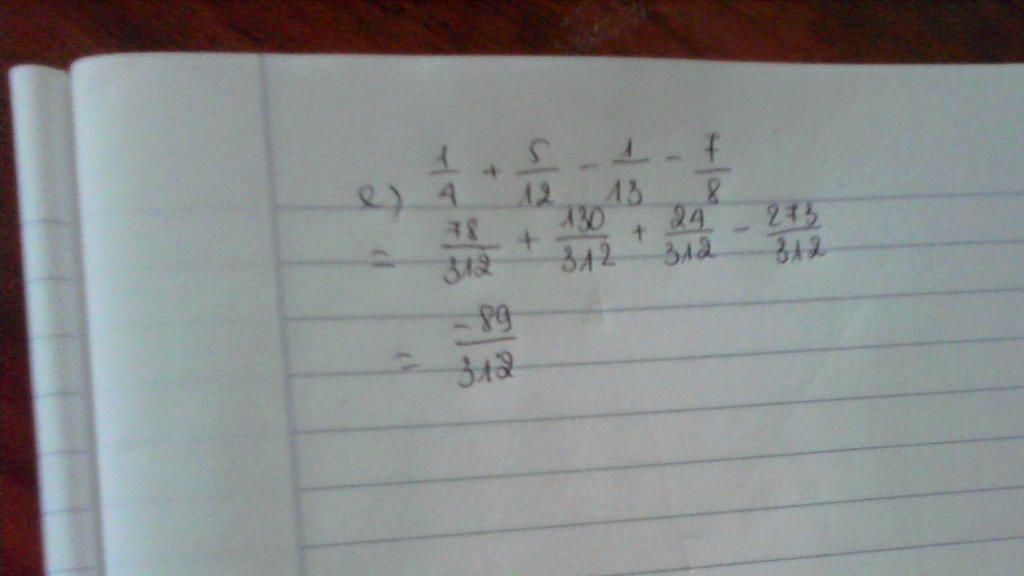 e) 1/4 + 5/12 - 1/13 - 7/8
= 78/312 + 130/312 + 24/312 - 273/312
= -89/312